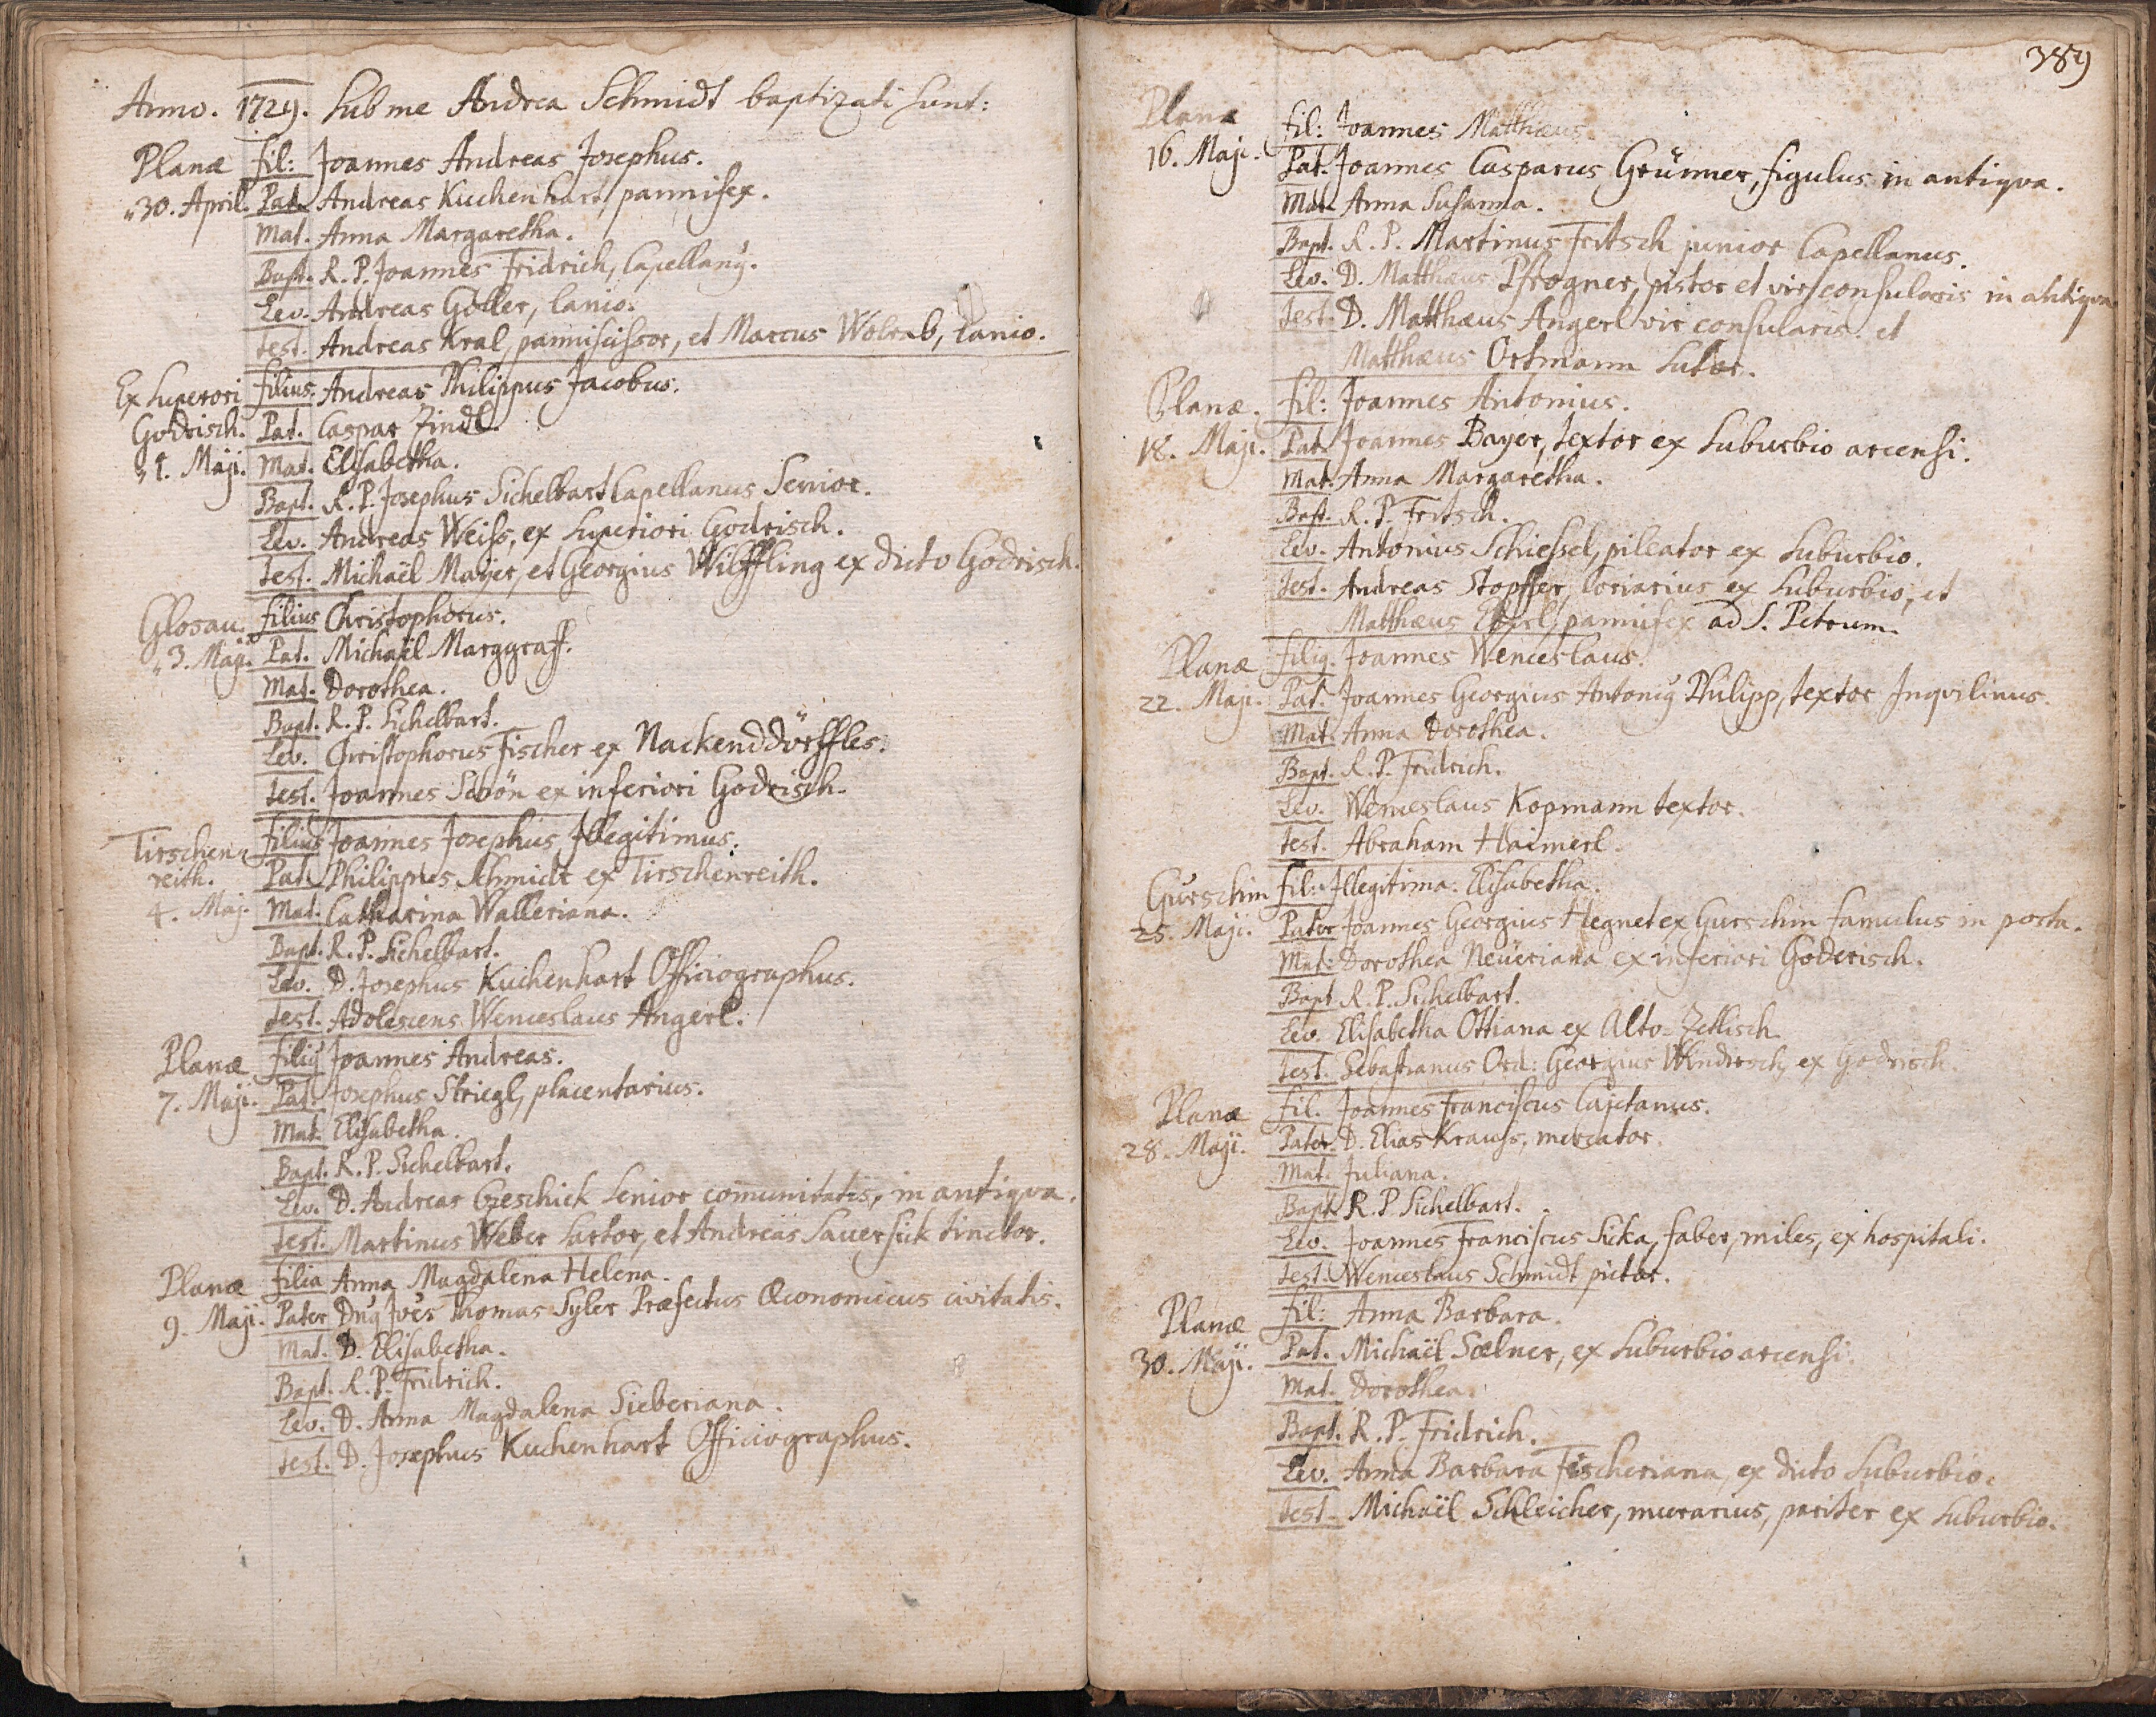 Anno. 1729. Sub me Andrea Schmidt baptizati sunt:
Planæ fil: Joannes Andreas Josephus.
30. April. Pat. Andreas Kuchenhart, pannifex.
Mat. Anna Margaretha.
Bapt. R. P. Joannes Fridrich, Capellanq.
Lev. Andreas Göller, lanio.
test. Andreas Kral, panniscissor, et Marcus Wolrab, lanio.
Ex Superori filius. Andreas Philippus Jacobus.
Godrisch. Pat. Caspar Zindl.
1. Maji. Mat. Elisabetha.
Bapt. R. P. Josephus Sichelbart Capellanus Senior.
Lev. Andreas Weiss, ex Superiori Godrisch.
test. Michaël Mayer, et Georgius Wilffling ex dicto Godrisch.
Glosau. filius Christophorus.
3. Maji. Pat. Michaël Marggraff.
Mat. Dorothea.
Bapt. R. P. Sichelbart.
Lev. Christophorus Fischer ex Nackenddörffles.
test. Joannes Schön ex inferiori Godrisch.
Tirschen- filius Joannes Josephus, Illegitimus.
reith. Pat. Philippus Schmidt ex Tirschenreith.
4. Maj. Mat. Catharina Walleriana.
Bapt. R. P. Sichelbart.
Lev. D. Josephus Kuchenhart Officiographus.
test. Adolescens Wenceslaus Angerl.
Planæ filiq Joannes Andreas.
7. Maji. Pat. Josephus Striegl, placentarius.
Mat. Elisabetha.
Bapt. R. P. Sichelbart.
Lev. D. Andreas Czeschick Senior comunitatis, in antiqva.
test. Martinus Weber Sartor, et Andreas Sauersick tinctor.
Planæ filia Anna Magdalena Helena.
9. Maji. Pater Dnq Joës Thomas Syler Præfectus Œconomicus civitatis.
Mat. D. Elisabetha.
Bapt. R. P. Fridrich.
Lev. D. Anna Magdalena Sieberiana.
test. D. Josephus Kuchenhart Officiographus.
389
Planæ fil: Joannes Matthæus.
16. Maji. Pat. Joannes Casparus Grünner, figulus in antiqva.
Mat. Anna Susanna.
Bapt. R. P. Martinus Fritsch junior Capellanus.
Lev. D. Matthæus Pfrogner, pistor et vir consularis in antiqva
test. D. Matthæus Angerl vir consularis. et
Matthæus Ortmann Sutor.
Planæ. fil: Joannes Antonius.
18. Maji. Pat. Joannes Bayer, textor ex Suburbio arcensi.
Mat. Anna Margaretha.
Bapt. R. P. Fritsch.
Lev. Antonius Schiessel, pileator ex Suburbio.
test. Andreas Stopffer, Coriarius ex Suburbio, et
Matthæus Eberl, pannifex ad S. Petrum.
Planæ filiq. Joannes Wenceslaus.
22. Maji. Pat. Joannes Georgius Antoniq Philipp, textor Inqvilinus.
Mat. Anna Dorothea.
Bapt. R. P. Fridrich.
Lev. Wenceslaus Kopmann textor.
test. Abraham Haimerl.
Gurschin fil: Illegitima. Elisabetha.
25. Maji. Pater Joannes Georgius Hegnet ex Gurschin famulus in posta.
Mat: Dorothea Neüeriana ex inferiori Goderisch.
Bapt. R. P. Sichelbart.
Lev. Elisabetha Ottiana ex Alto-Zetlisch.
test. Sebastianus Ord: Georgius Windirsch, ex Godrisch.
Planæ fil. Joannes Franciscus Cajetanus.
28. Maji. Pater. D. Elias Krauss, mercator.
Mat. Juliana.
Bapt. R. P. Sichelbart.
Lev. Joannes Franciscus Sicka, faber, miles, ex hospitali.
test. Wenceslaus Schmidt pictor.
Planæ fil: Anna Barbara.
30. Maji. Pat. Michaël Sœlner, ex Suburbio arcensi.
Mat. Dorothea.
Bapt. R. P. Fridrich.
Lev. Anna Barbara Fischeriana, ex dicto Suburbio.
test. Michaël Schleicher, murarius, pariter ex Suburbio.